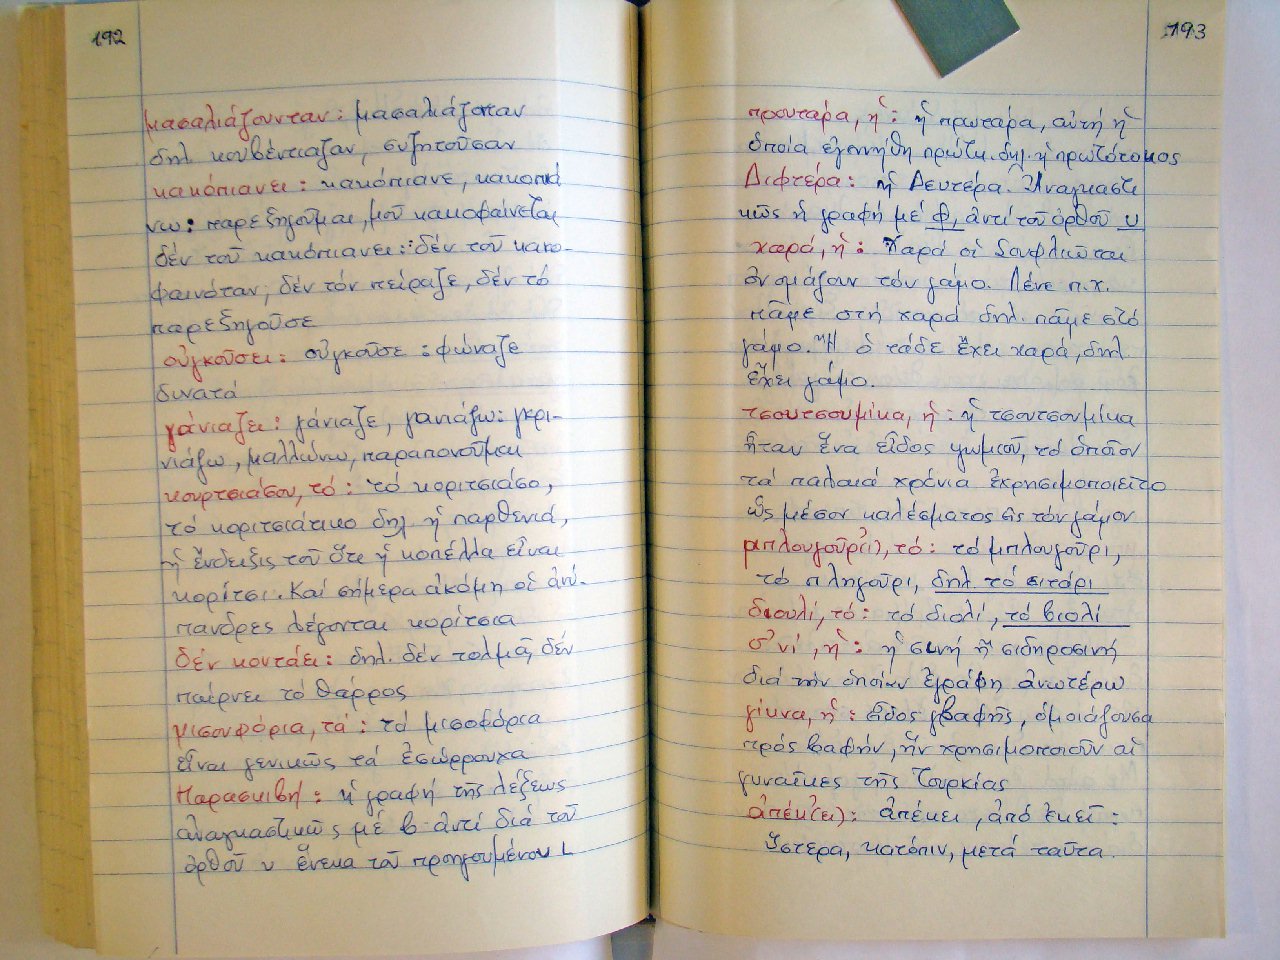 192
μασαλιάζουνταν: μασαλιάζοταν
δηλ. κουβέντιαζαν, συζητοῦσαν
κακόπιανει: κακόπιανε, κακοπιά
νω: παρεξηγοῦμαι, μοῦ κακοφαίνεται
δέν τοῦ κακόπιανει: δέν τοῦ κακο-
φαινόταν, δέν τόν πείραζε, δέν τό
παρεξηγοῦσε
οὐγκοῦσει: οὐγκοῦσε: φώναζε
δυνατά
γάνιαζει: γάνιαζε, γανιάζω: γκρι-
νιάζω, μαλλώνω, παραπονοῦμαι
κουρτσιάσου, τό: τό κοριτσιάσο,
τό κοριτσιάτικο δηλ ἡ παρθενιά,
ἡ ἔνδειξις τοῦ ὅτι ἡ κοπέλλα εἶναι
κορίτσι. Καί σήμερα ἀκόμη οἱ ἀνύ-
πανδρες λέγονται κορίτσια
δέν κοντάει: δηλ. δέν τολμᾶ, δέν
παίρνει τό θάρρος
μισουφόρια, τά: τά μισοφόρια
εἶναι γενικῶς τά ἐσώρρουχα
Παρασκιβή: ἡ γραφή τῆς λέξεως
ἀναγκαστικῶς μέ β ἀντί διά τοῦ
ὀρθοῦ υ ἕνεκα τοῦ προηγουμένου ι
193
προυτάρα, ἡ: ἡ πρωτάρα, αὐτή ἡ
ὁποία ἐγεννήθη πρώτη. δηλ. ἡ πρωτότοκος
Διφτέρα: ἡ Δευτέρα. Ἀναγκαστι
κῶς ἡ γραφή μέ φ, ἀντί τοῦ ὀρθοῦ υ
χαρά, ἡ: Χαρά οἱ Σουφλιῶται
ὀνομάζουν τόν γάμο. Λένε π.χ.
πᾶμε στή χαρά δηλ. πᾶμε στό
γάμο. Ἤ ὁ τάδε ἔχει χαρά, δηλ.
ἔχει γάμο.
τσουτσουμίκα, ἡ: ἡ τσουτσουμίκα
ἦταν ἕνα εἶδος ψωμιοῦ, τό ὁποῖον
τά παλαιά χρόνια ἐχρησιμοποιεῖτο
ὡς μέσον καλέσματος εἰς τόν γάμον
μπλουγοῦρ(ι), τό: τό μπλουγοῦρι,
τό πληγοῦρι, δηλ. τό σιτάρι
διουλί, τό: τό διολί, τό βιολί
σ'νί, ἡ: ἡ σινή ἤ σιδηροσινή
διά τήν ὁποίαν ἐγράφη ἀνωτέρω
γίκνα, ἡ: εἶδος βαφῆς, ὁμοιάζουσα
πρός βαφήν, ἥν χρησιμοποιοῦν αἱ
γυναῖκες τῆς Τουρκίας
ἀπέκ(ει): ἀπέκει, ἀπό ἐκεῖ:
ὕστερα, κατόπιν, μετά ταῦτα.